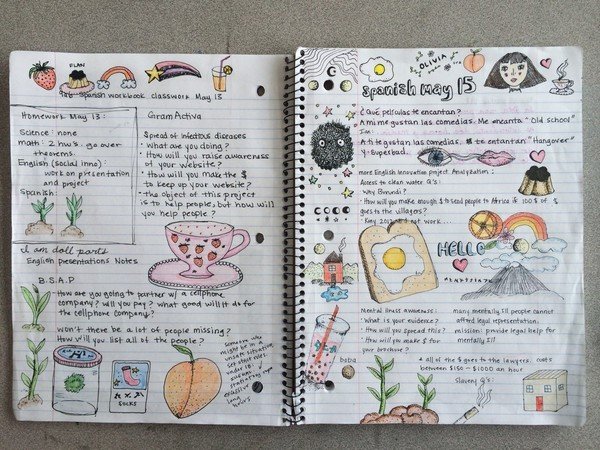 FLAN
Spanish workbook classwork May 15
Homework May 13:
Science: none
math: 2 hw's. go over
theorems.
English (Social Inno):
work on presentation
and project
Spanish:
Gram Activa
Spread of infectious diseases
• what are you doing?
• How will you raise awareness
of your website?
• How will you make the $
to keep up your website?
• the object of this project
is to help people, but how will
you help people?
I am doll parts
English presentations Notes
B.S.A.P
How are you going to partner w/ a cellphone
company? will you pay? what good will it do for
the cellphone company?
Won't there be a lot of people missing?
How will you list all of the people?
someone who
might be in an
unsafe situation,
under 18:
excessive
long
hours
SOCKS
OLIVIA
Spanish May 15
¿Qué películas te encantan?
A mi me gustan las comedias. Me encanta "Old school"
A ti te gustan las comedias. te encantan "Hangover"
y "Superbad.
more English Innovation project Analyzation:
Access to clean water Q's:
• Why Burundi?
• How will you make enough $ to send people to Africa if 100% of $
goes to the villagers?
• Kony 2012 did not work....
HELLO
Mental Illness awareness:
• what is your evidence?
• How will you spread this?
• How will you make $ for
your brochure?
many mentally ill people cannot
afford legal representation
mission: provide legal help for
mentally ill
boba
• all of the $ goes to the lawyers. costs
between $150 - $1000 an hour
Slavery Q's: